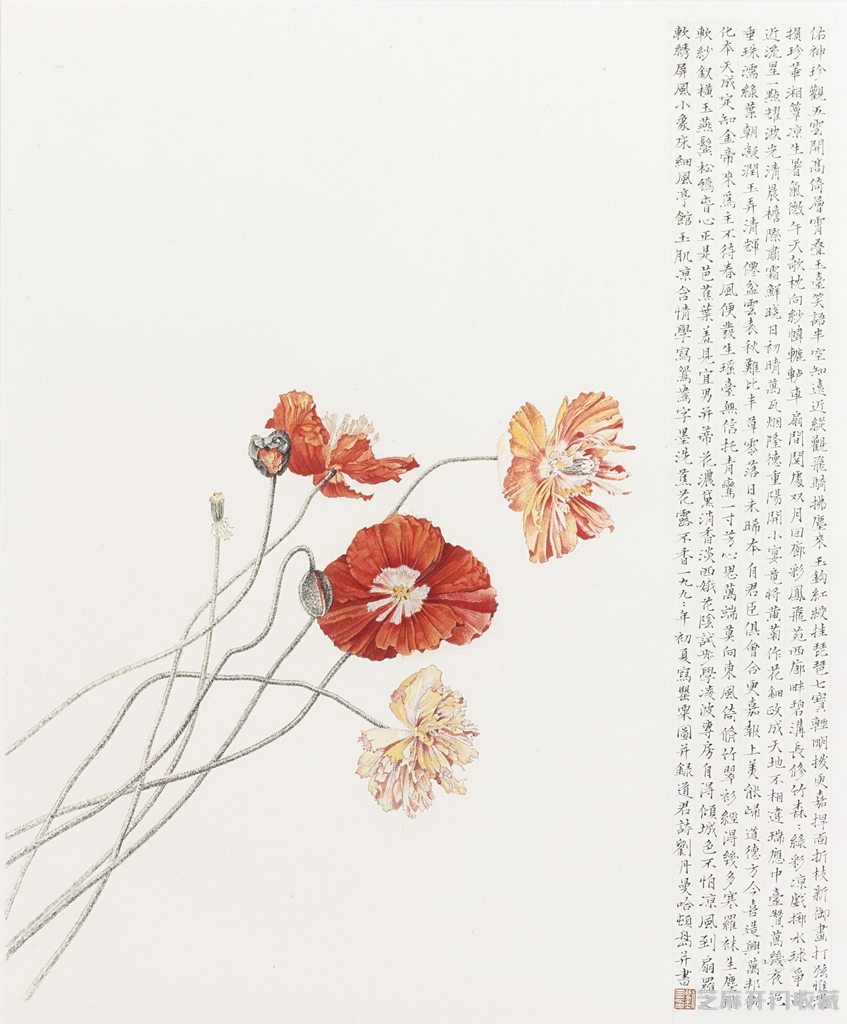 佑神珍觀五雲開高倚層霄疊玉臺笑語半空知遠近縱觀飛騎拂塵來玉鈎紅綬挂琵琶七寶輕明撥更嘉捍面折枝新御畫打弦唯恐
損珍華湘簟凉生暑氣微午天欹枕向紗幃轆轤車扇閒閒處双月回廊彩鳳飛苑西廊畔碧溝長修竹森〻綠彩凉戲擲水球爭遠
近流星一點耀波光清晨檐際肅霜鮮曉日初晴萬瓦烟隆德重陽開小宴竟將黃菊作花鈿政成天地不相違瑞應中臺贊萬幾夜色
垂珠濡綠葉朝凝潤玉弄清輝僊盆雲表秋難比丰草零落日未晞本自君臣俱會合更嘉報上美能歸道德方今喜造興萬邦從
化本天成定知金帝來爲主不待春風便發生瑤臺無信托青鸞一寸芳心思萬端莫向東風倚脩竹翠衫經得幾多寒羅袜生塵
軟紗釵橫玉燕鬢松鴉春心正是芭蕉葉羞見宜男并蒂花濃黛消香淡兩娥花陰試步學凌波專房自得傾城色不怕凉風到扇羅
軟綉屏風小象床細風亭館玉肌凉含情學寫鴛鴦字墨洗蕉花露不香一九九〻年初夏寫罌粟圖并錄道君詩劉丹曼哈頓島并書
芝麻开门收藏